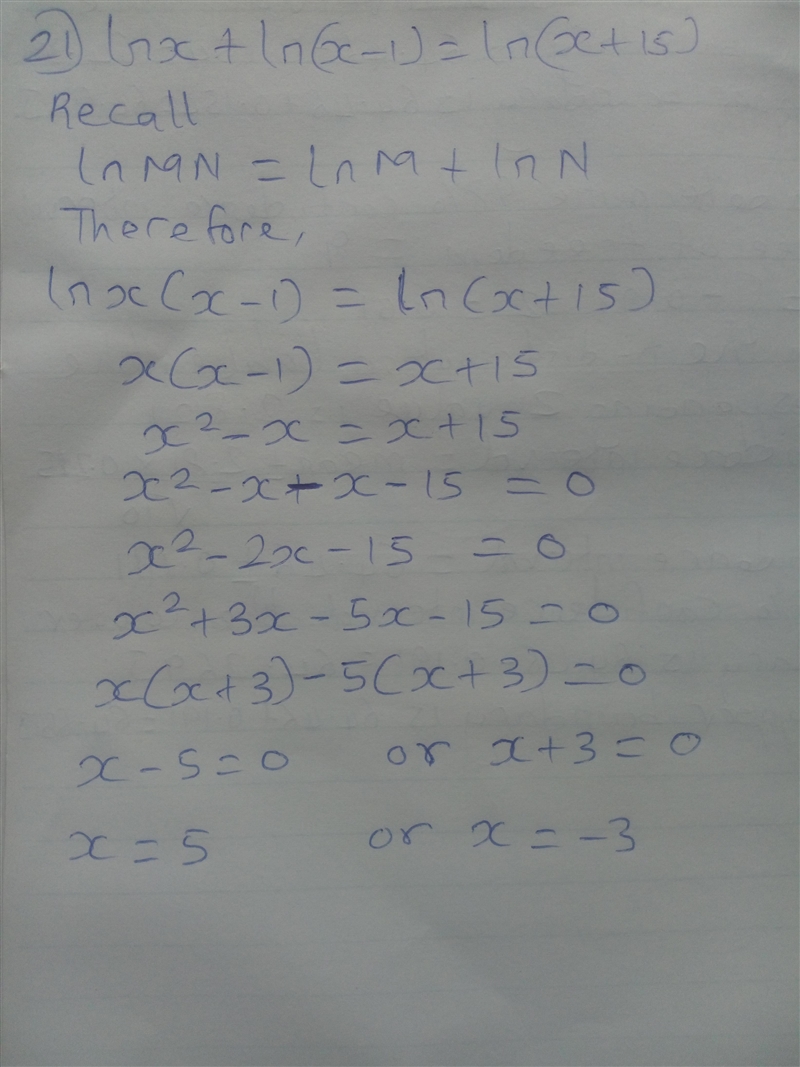 21) ln x + ln(x-1) = ln(x+15)
Recall
ln MN = ln M + ln N
Therefore,
ln x(x-1) = ln(x+15)
x(x-1) = x+15
x² - x = x+15
x² - x - x - 15 = 0
x² - 2x - 15 = 0
x² + 3x - 5x - 15 = 0
x(x+3) - 5(x+3) = 0
x - 5 = 0 or x + 3 = 0
x = 5 or x = -3